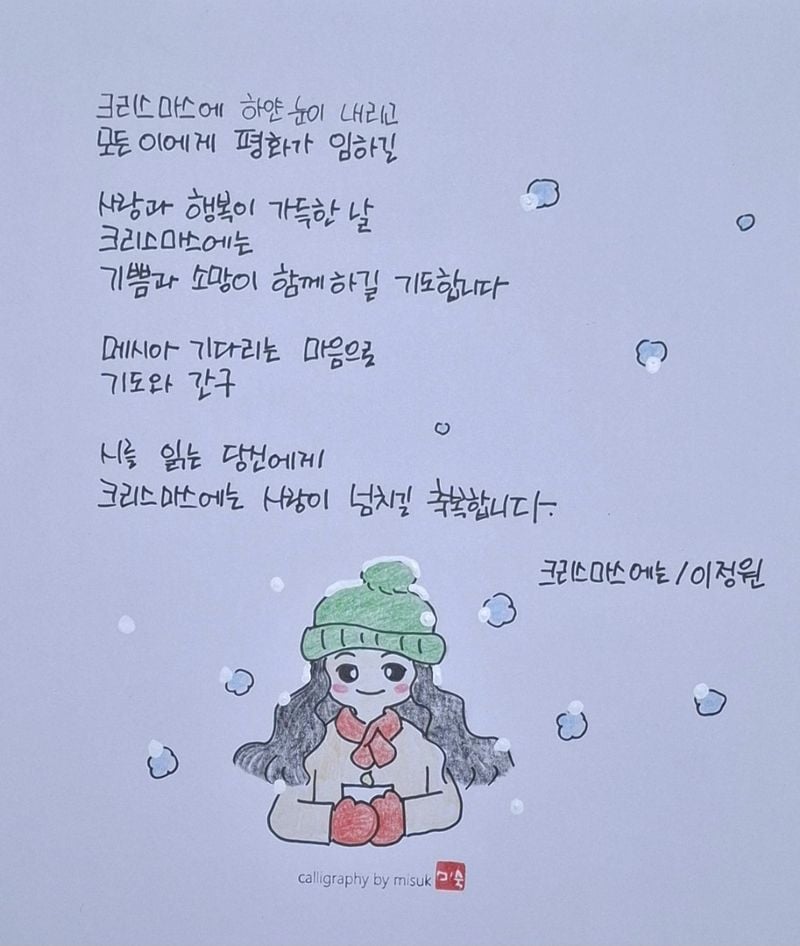 크리스마스에 하얀 눈이 내리고
모든 이에게 평화가 임하길
사랑과 행복이 가득한 날
크리스마스에는
기쁨과 소망이 함께 하길 기도합니다
메시아 기다리는 마음으로
기도와 간구
시를 읽는 당신에게
크리스마스에는 사랑이 넘치길 축복합니다.
크리스마스에는/이정원
calligraphy by misuk
미숙